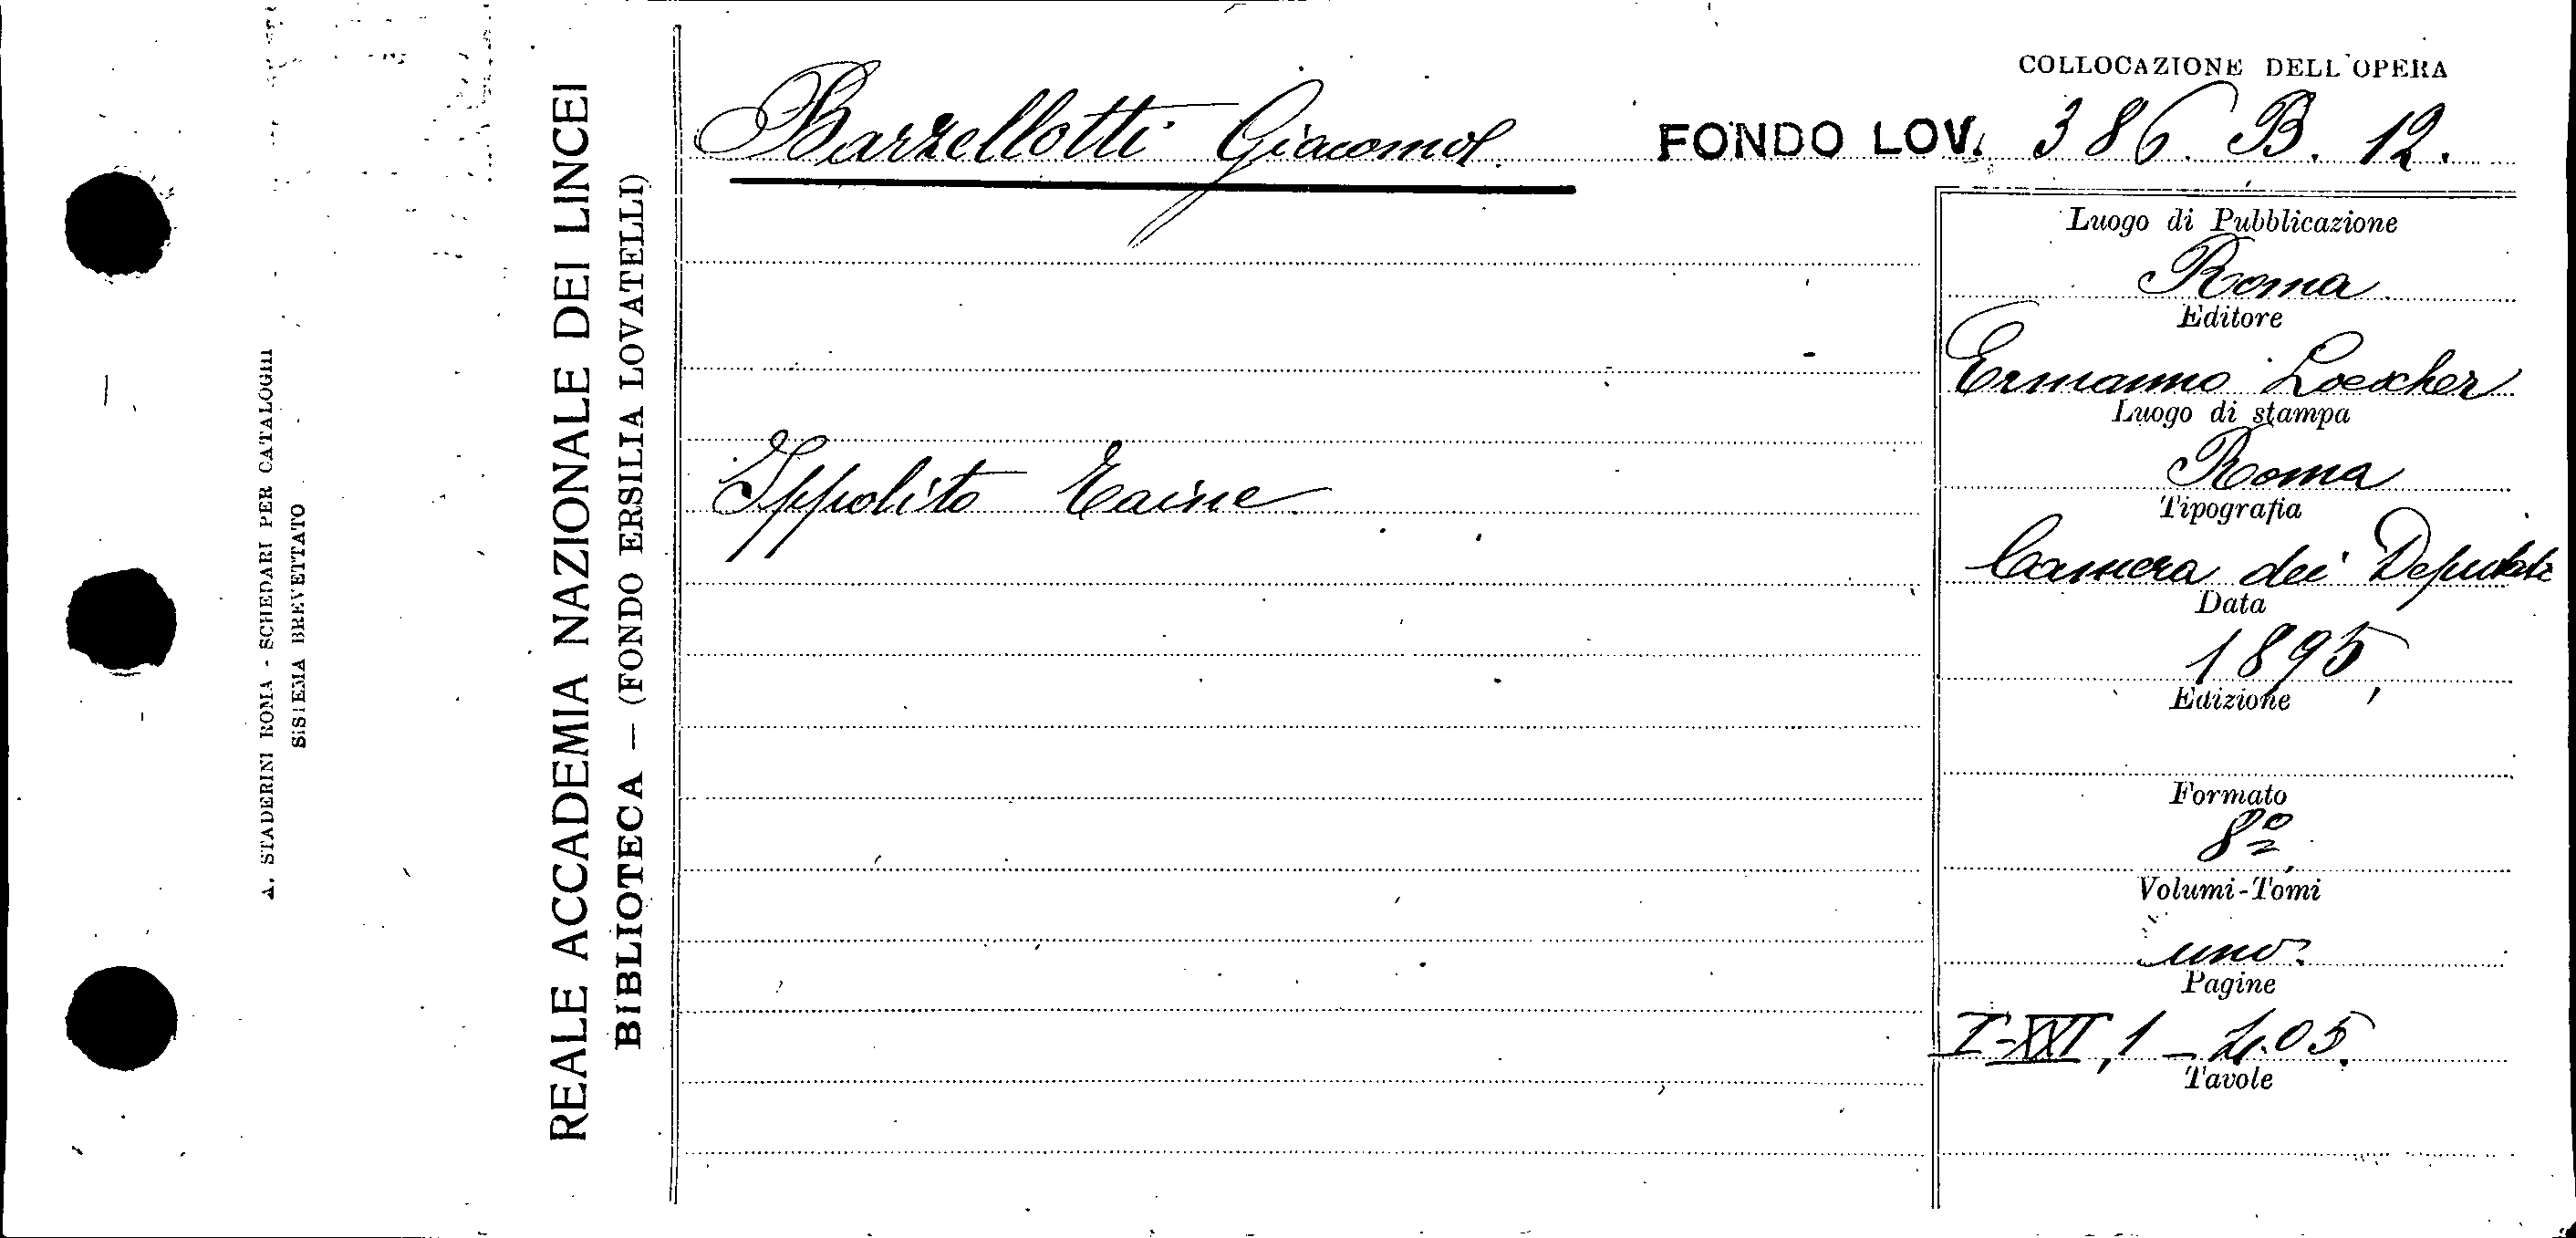 A. STADERINI ROMA - SCHEDARI PER CATALOGHI
SISTEMA BREVETTATO
REALE ACCADEMIA NAZIONALE DEI LINCEI
BIBLIOTECA — (FONDO ERSILIA LOVATELLI)
COLLOCAZIONE DELL'OPERA
Barzellotti Giacomo.
FONDO LOV. 386. B. 12.
Ippolito Taine
Luogo di Pubblicazione
Roma
Editore
Ermanno Loescher
Luogo di stampa
Roma
Tipografia
Camera dei Deputati
Data
1895,
Edizione
Formato
8º
Volumi-Tomi
uno.
Pagine
I-XXI, 1 - 405.
Tavole